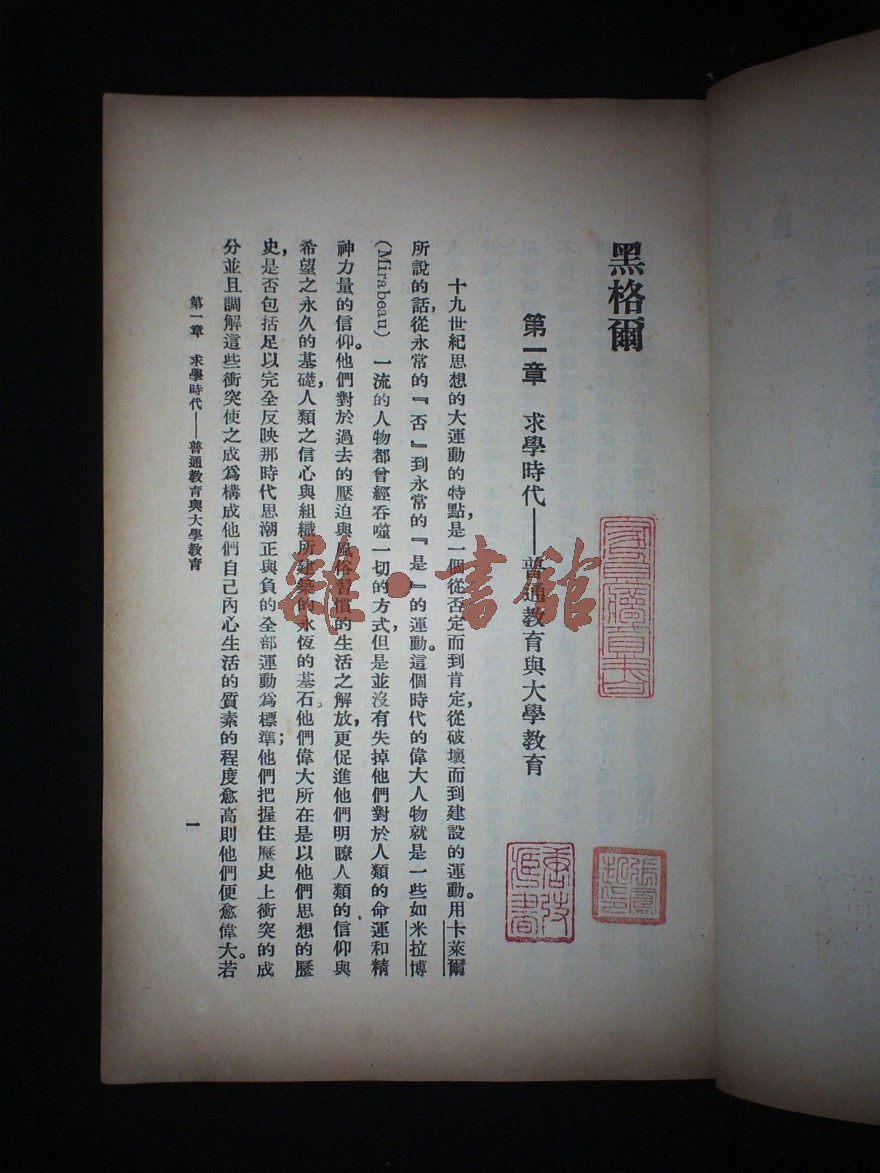 黑格爾
第一章　求學時代——普通教育與大學教育
十九世紀思想的大運動的特點，是一個從否定而到肯定，從破壞而到建設的運動。用卡萊爾
所說的話，從永常的『否』到永常的『是』的運動。這個時代的偉大人物就是一些如米拉博
(Mirabeau) 一流的人物都曾經吞噬一切的方式，但是並沒有失掉他們對於人類的命運和精
神力量的信仰。他們對於過去的壓迫與風俗習慣的生活之解放，更促進他們明瞭人類的信仰與
希望之永久的基礎，人類之信心與組織所建築的永恆的基石。他們偉大所在是以他們思想的歷
史，是否包括足以完全反映那時代思潮正與負的全部運動爲標準；他們把握住歷史上衝突的成
分並且調解這些衝突使之成爲構成他們自己內心生活的質素的程度愈高則他們便愈偉大。若
第一章　求學時代——普通教育與大學教育
一
雜·書館